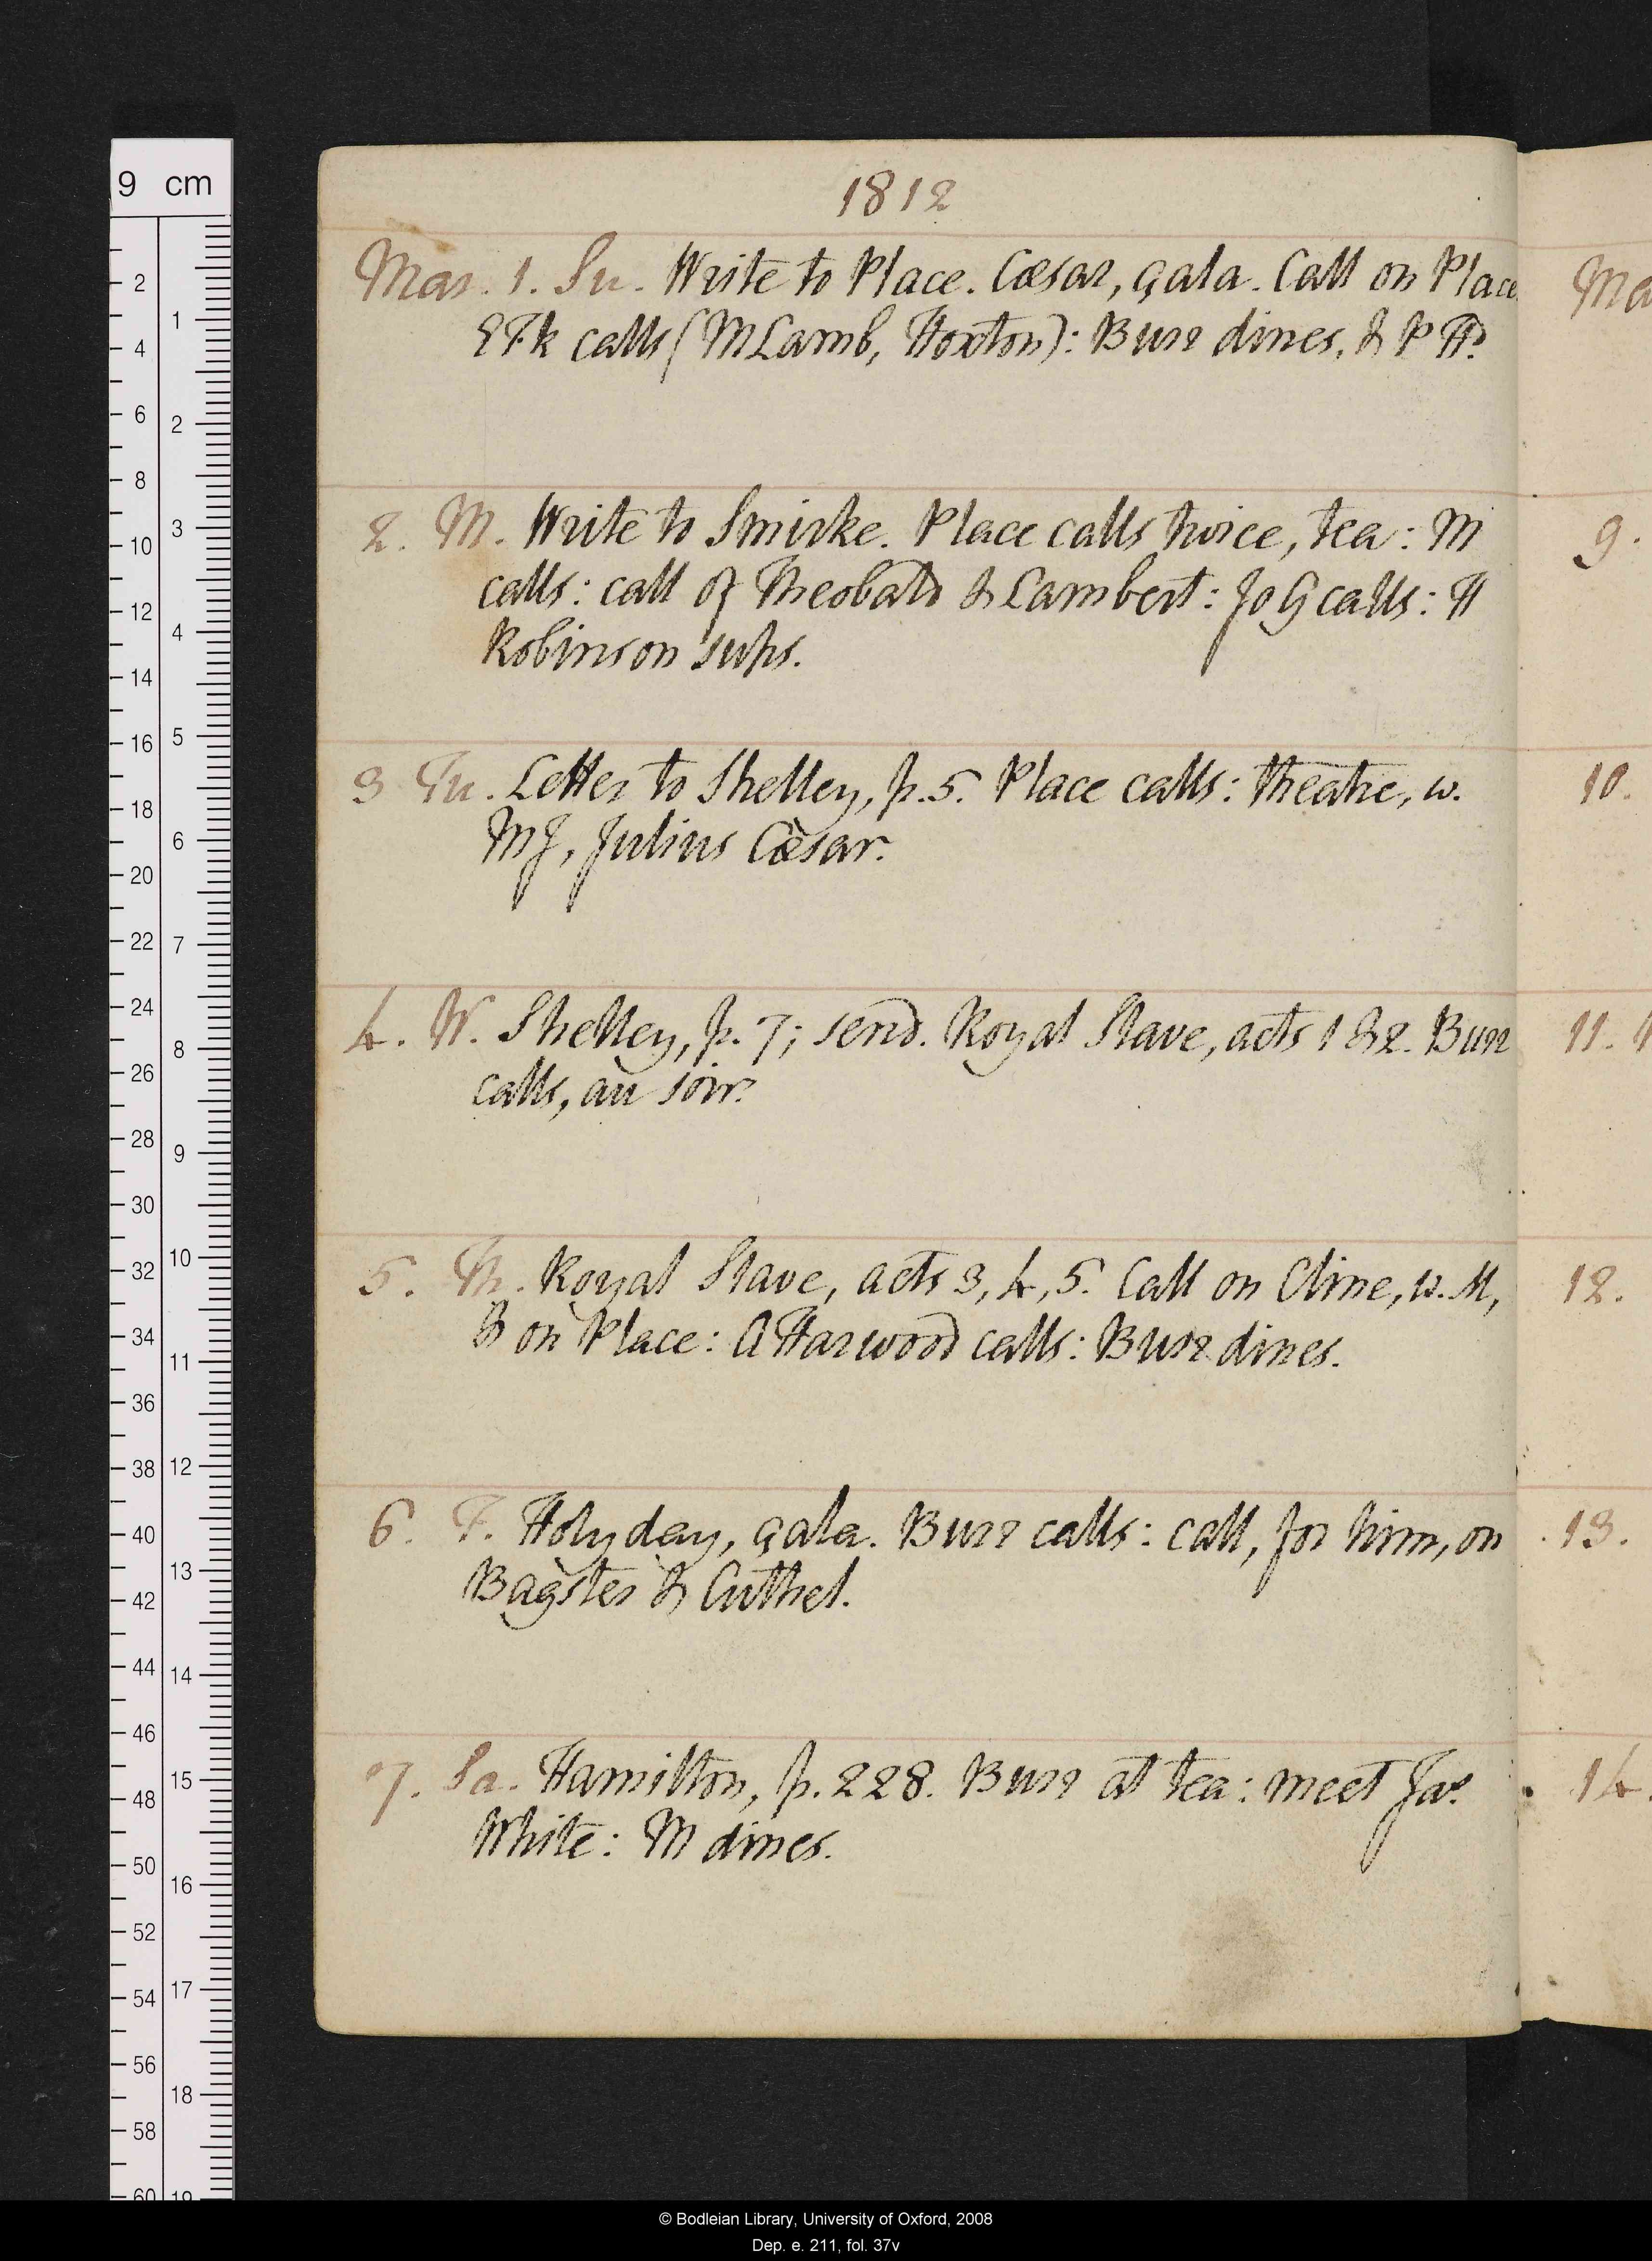 1812
Mar. 1. Su. Write to Place. Cæsar, çala. Call on Place
E Fk calls (M Lamb, Hoxton): Burr dines, & P Hd.
2. M. Write to Smirke. Place calls twice, tea: M
calls: call of Theobald & Lambert: Jo G calls: H
Robinson sups.
3 Tu. Letter to Shelley, p. 5. Place calls: theatre, w.
MJ, Julius Cæsar.
4. W. Shelley, p. 7; send. Royal Slave, acts 1 & 2. Burr
calls, au soir.
5. Th. Royal Slave, acts 3, 4, 5. Call on Cline, w. M,
& on Place: A Harwood calls: Burr dines.
6. F. Holyday, çala. Burr calls: call, for him, on
Bagster & Cuthel.
7. Sa. Hamilton, p. 228. Burr at tea: meet Jas.
White: M dines.
Ma
9.
10.
11.
12.
13.
14.
9 cm
2
4
6
8
10
12
14
16
18
20
22
24
26
28
30
32
34
36
38
40
42
44
46
48
50
52
54
56
58
60
1
2
3
4
5
6
7
8
9
10
11
12
13
14
15
16
17
18
19
© Bodleian Library, University of Oxford, 2008
Dep. e. 211, fol. 37v